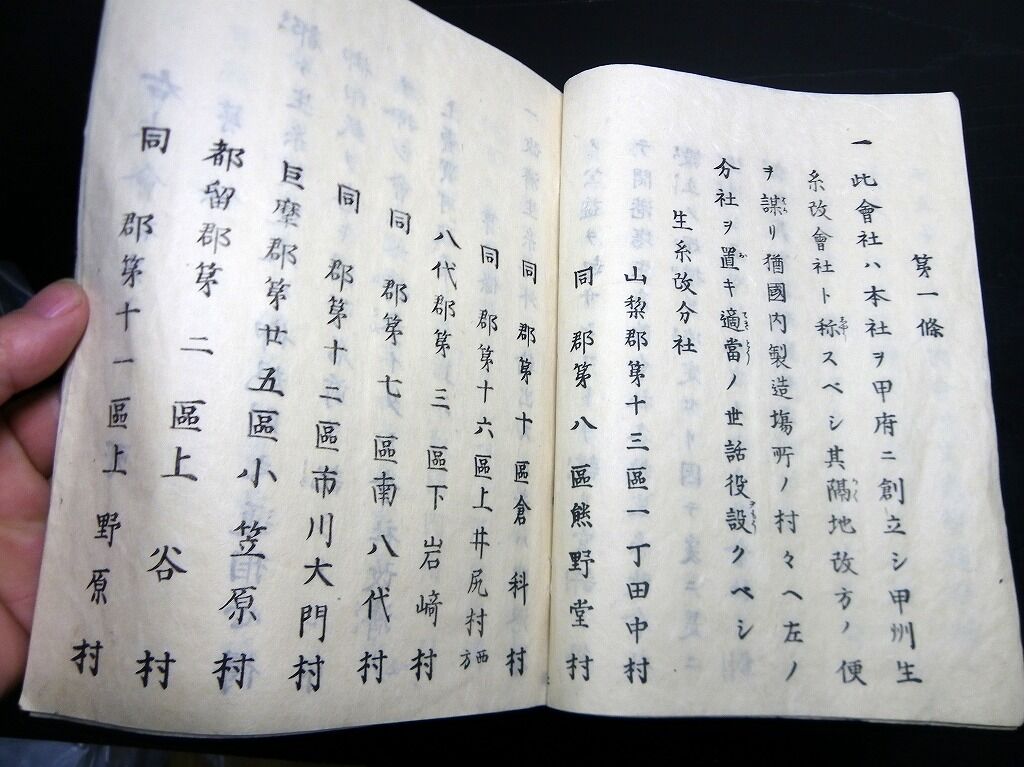 第一條
一此會社ハ本社ヲ甲府ニ創立シ甲州生
糸改會社ト称スベシ其隔地改方ノ便
ヲ謀リ猶國内製造場所ノ村々ヘ左ノ
分社ヲ置キ適當ノ世話役設クベシ
生糸改分社
山梨郡第十三區一丁田中村
同郡第八區熊野堂村
同郡第 十區倉科村
同郡第十六區上井尻村西方
八代郡第三區下岩﨑村
同郡第七區南八代村
同郡第十二區市川大門村
巨摩郡第廿五區小笠原村
都留郡第二區上谷村
同郡第十一區上野原村